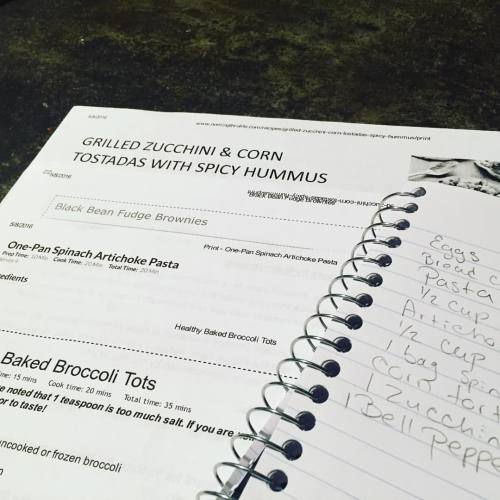 5/8/2016
www.nomingthrulife.com/recipes/grilled-zucchini-corn-tostadas-spicy-hummus/print
GRILLED ZUCCHINI & CORN
TOSTADAS WITH SPICY HUMMUS
5/8/2016
Black Bean Fudge Brownies
Black Bean Fudge Brownies
5/8/2016
Print - One-Pan Spinach Artichoke Pasta
One-Pan Spinach Artichoke Pasta
Prep Time: 10 Min Cook Time: 20 Min Total Time: 20 Min
edients
Healthy Baked Broccoli Tots
Baked Broccoli Tots
me: 15 mins Cook time: 20 mins Total time: 35 mins
e noted that 1 teaspoon is too much salt. If you are
or to taste!
uncooked or frozen broccoli
Eggs
Bread
Pasta
1/2 cup
Articho
1/2 cup
1 bag Spin
corn tor
1 Zucchin
1 Bell Peppe